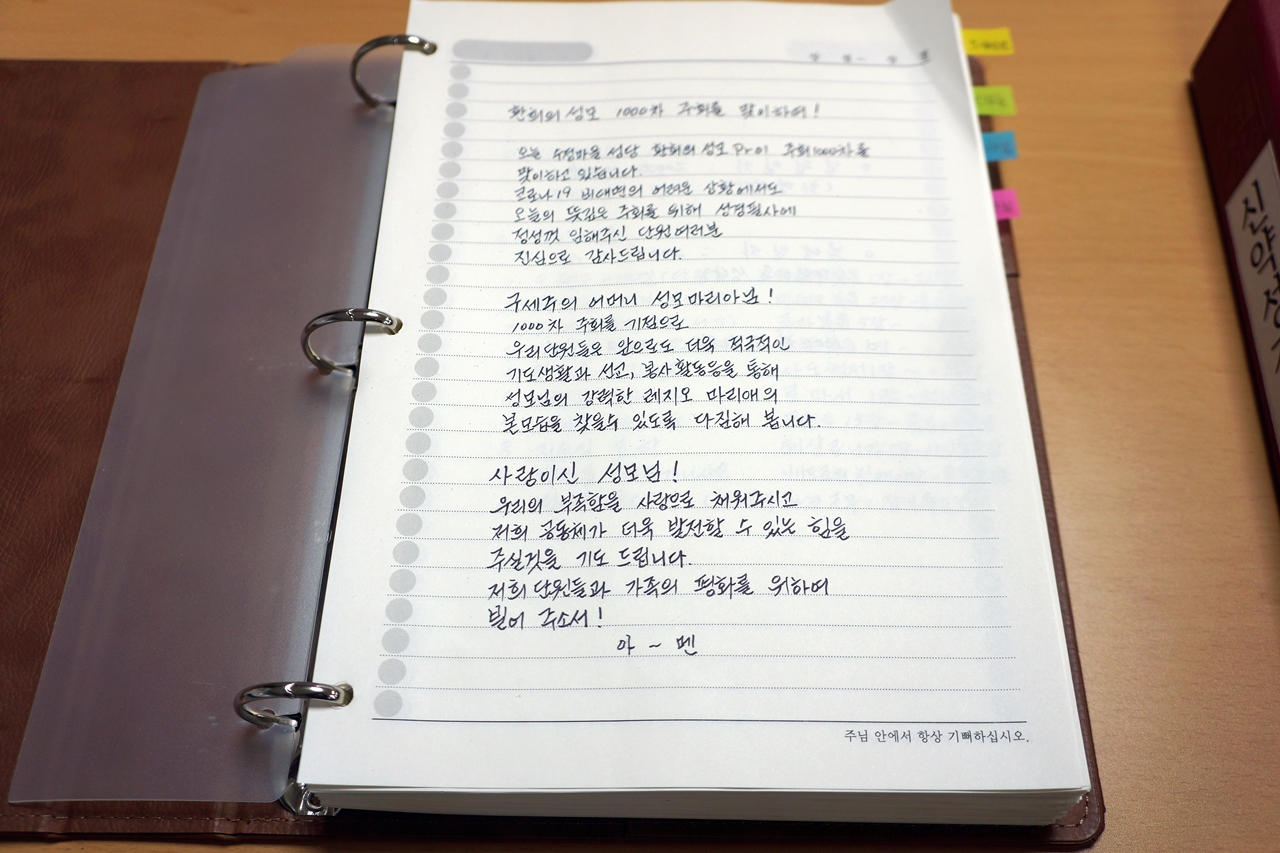 환희의 성모 1000차 주회를 맞이하며!
오늘 수정마을 성당 환희의 성모 Pr.이 주회1000차를
맞이하고 있습니다.
코로나19 비대면의 어려운 상황에서도
오늘의 뜻깊은 주회를 위해 성경필사에
정성껏 임해주신 단원여러분
진심으로 감사드립니다.
구세주의 어머니 성모마리아님!
1000차 주회를 기점으로
우리단원들은 앞으로도 더욱 적극적인
기도생활과 선교, 봉사활동등을 통해
성모님의 강력한 레지오 마리애의
본모습을 찾을수 있도록 다짐해 봅니다.
사랑이신 성모님!
우리의 부족함을 사랑으로 채워주시고
저희 공동체가 더욱 발전할 수 있는 힘을
주실것을 기도 드립니다.
저희 단원들과 가족의 평화를 위하여
빌어 주소서!
아 ~ 멘
주님 안에서 항상 기뻐하십시오.
신약성